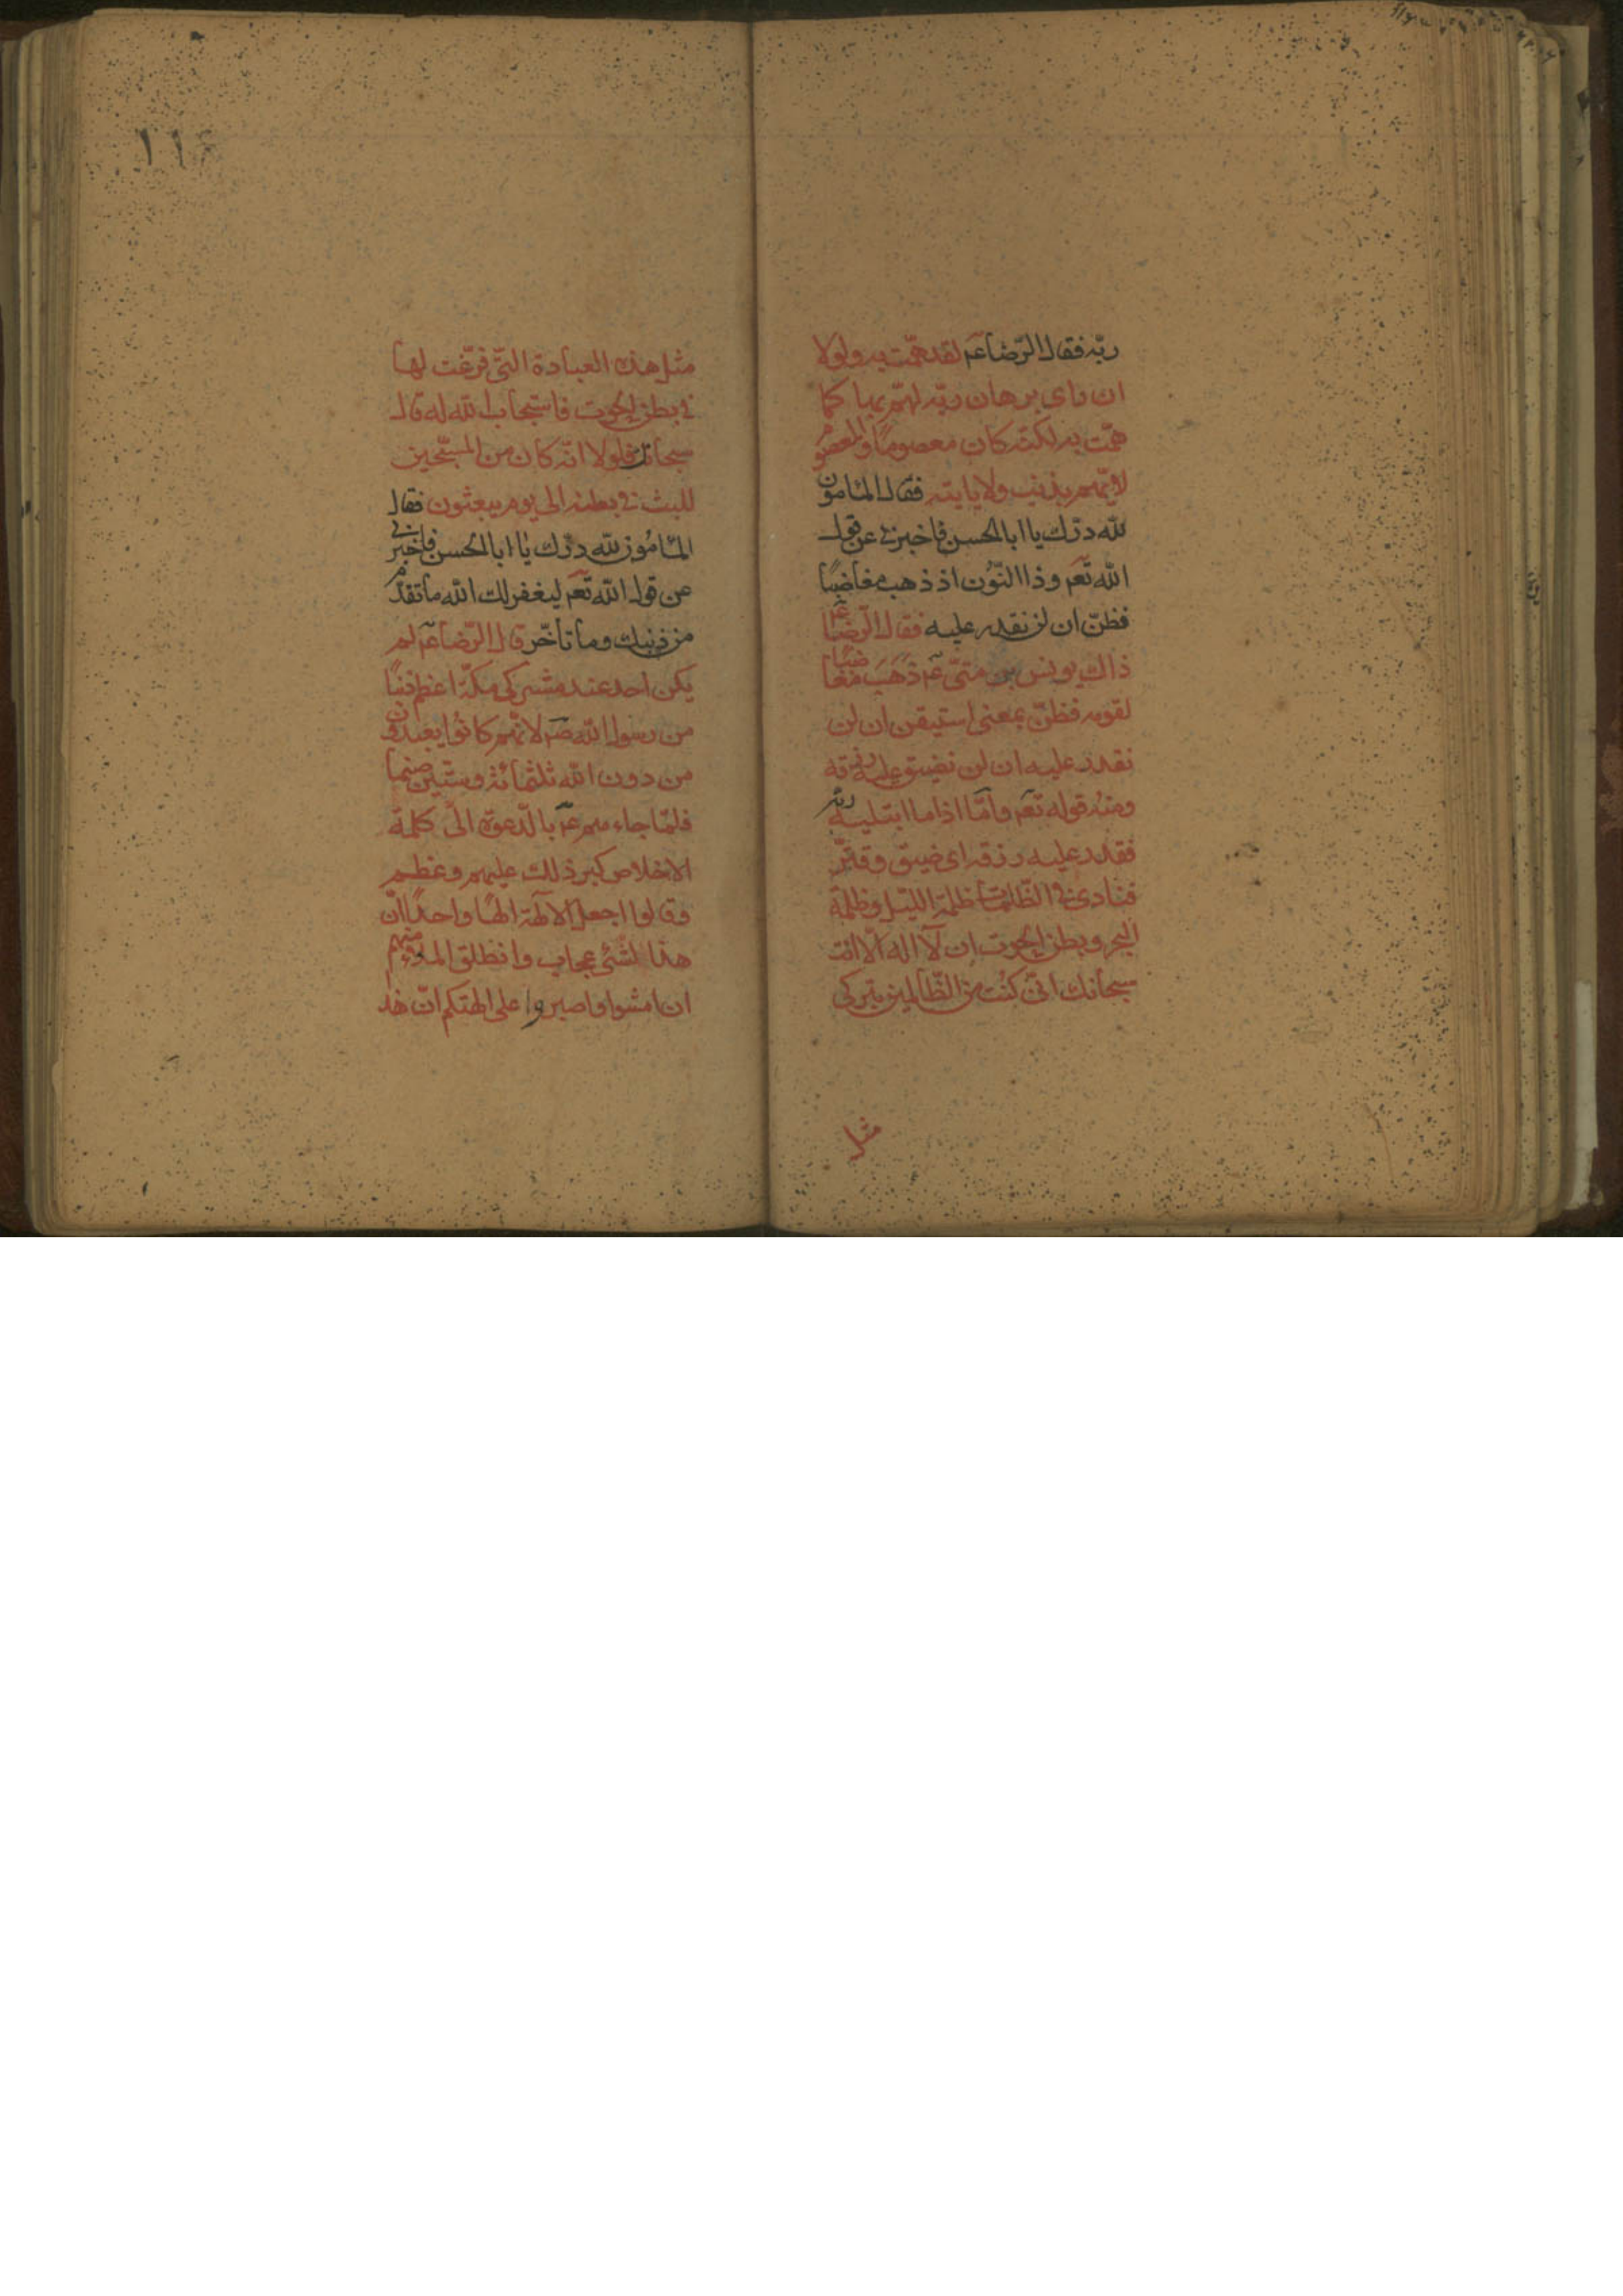 ربّه فقال الرّضا عم لقد همّت به ولولا
ان رای برهان ربّه لهمّ بها كما
همّت به لكنّه كان معصوما والمعصوم
لا يهم بذنب ولا ياتيه فقال المامون
لله درّك يا ابا الحسن فاخبرنی عن قول
الله تعم وذا النّون اذ ذهب مغاضبًا
فظنّ ان لن نقدر عليه فقال الرّضا عم
ذاك يونس بن متّی عم ذَهَبَ مغاضبًا
لقومه فظنّ بمعنی استيقن ان لن
نقدر عليه ان لن نضيق عليه رزقه
ومنه قوله تعم وامّا اذا ما ابتليه ربّه
فقدر عليه رزقه ای ضيق وقتّر
فنادی فی الظّلمات ظلمة الليّل وظلمة
البحر وبطن الحوت ان لآ اله الّا انت
سبحانك انّی كنُت من الظّالمين بتركی
مثل
١١٤
مثل هذه العبادة التّی فرّغت لها
فی بطن الحوت فاستجاب الله له قال
سبحانه فلولا انّه كان من المسبّحين
للبث فی بطنه الی يوم يبعثون فقال
المٔامُون لله درّك يا ابا الحسن فاخبرنی
عن قول الله تعم ليغفر لك الله ما تقدّم
من ذنبك وما تأخّر قال الرّضا عم لم
يكن احد عند مشركی مكّة اعظم ذنبًا
من رسول الله صم لانّهم كانُوا يعبدون
من دون الله ثلثمائة وستّين صنما
فلمّا جاءهم عم بالدّعوة الی كلمة
الاخلاص كبر ذلك عليهم وعظم
وقالوا اجعل الآلهة الهًا واحدًا انّ
هذا لشیٔ عجاب وانطلق الملاء منهم
ان امشوا واصبروا علی الهتكم انّ هذ